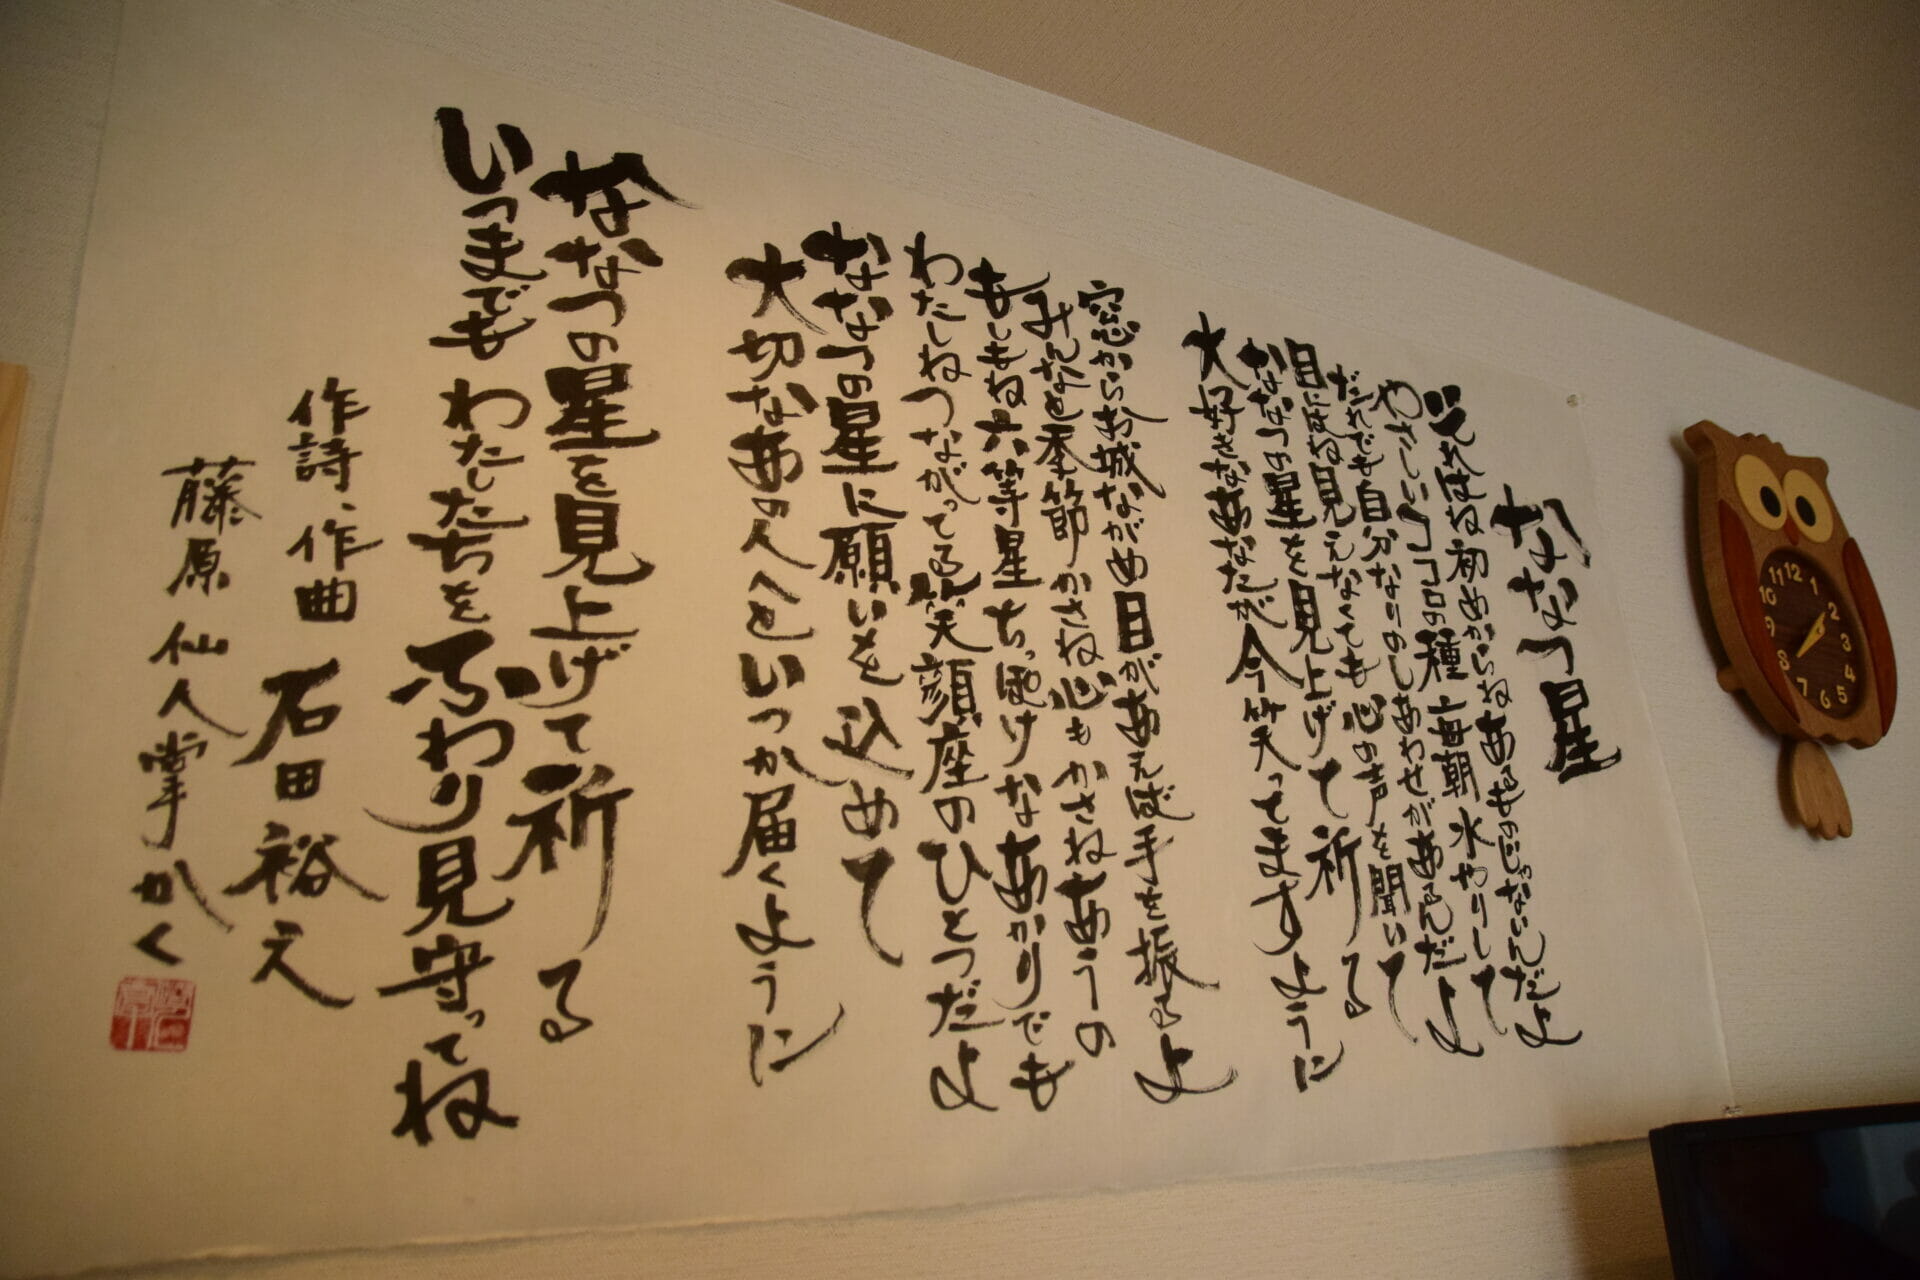 ななつ星
それはね初めからねあるものじゃないんだよ
やさしいココロの種毎朝水やりして
だれでも自分なりのしあわせがあるんだよ
目には見えなくても心の声を聞いて
ななつの星を見上げて祈る
大好きなあなたが今笑ってますように
窓からお城ながめ目があえば手を振るよ
みんなと季節かさね心もかさねあうの
もしもね六等星ちっぽけなあかりでも
わたしねつながってる笑顔座のひとつだよ
ななつの星に願いを込めて
大切なあの人へといつか届くように
ななつの星を見上げて祈る
いつまでもわたしたちをふわり見守ってね
作詩、作曲 石田裕之
藤原仙人掌かく
12
1
2
3
4
5
6
7
8
9
10
11